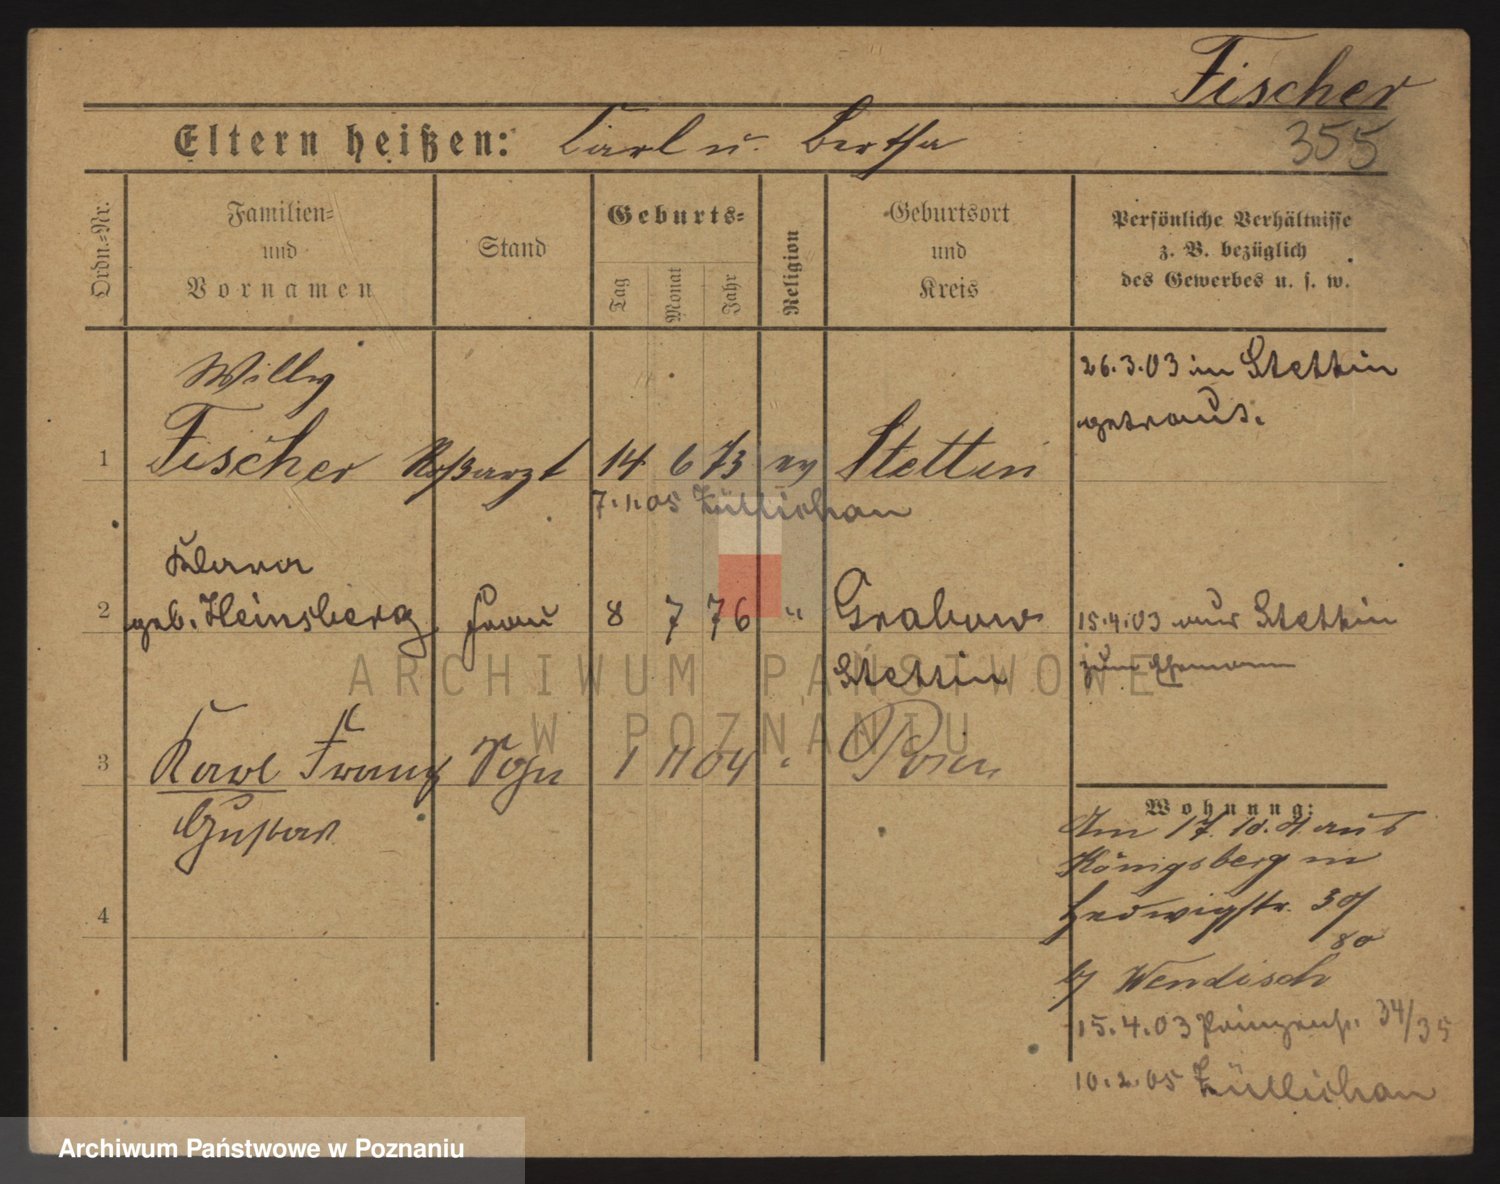 Fischer
355
Eltern heißen: Carl u. Bertha
Ordn.=Nr.
Familien=
und
Vornamen
Stand
Geburts=
Tag
Monat
Jahr
Religion
Geburtsort
und
Kreis
Persönliche Verhältnisse
z. B. bezüglich
des Gewerbes u. s. w.
Willy
1 Fischer Roßarzt 14 6 73 ev Stettin
26.3.03 in Stettin
getraut.
7.1.05 Züllichau
Klara
2 geb. Heinsberg Frau 8 7 76 " Grabow
Stettin
15.4.03 aus Stettin
zum Ehemann
3 Karl Franz Sohn 1 11 04 " Posen
Gustav
4
Wohnung:
Am 17. 10. 01 aus
Königsberg in
Hedwigstr.
b/ Wendisch
15.4.03 Prinzenstr. 34/35
10.2.05 Züllichau
ARCHIWUM PAŃSTWOWE
W POZNANIU
Archiwum Państwowe w Poznaniu